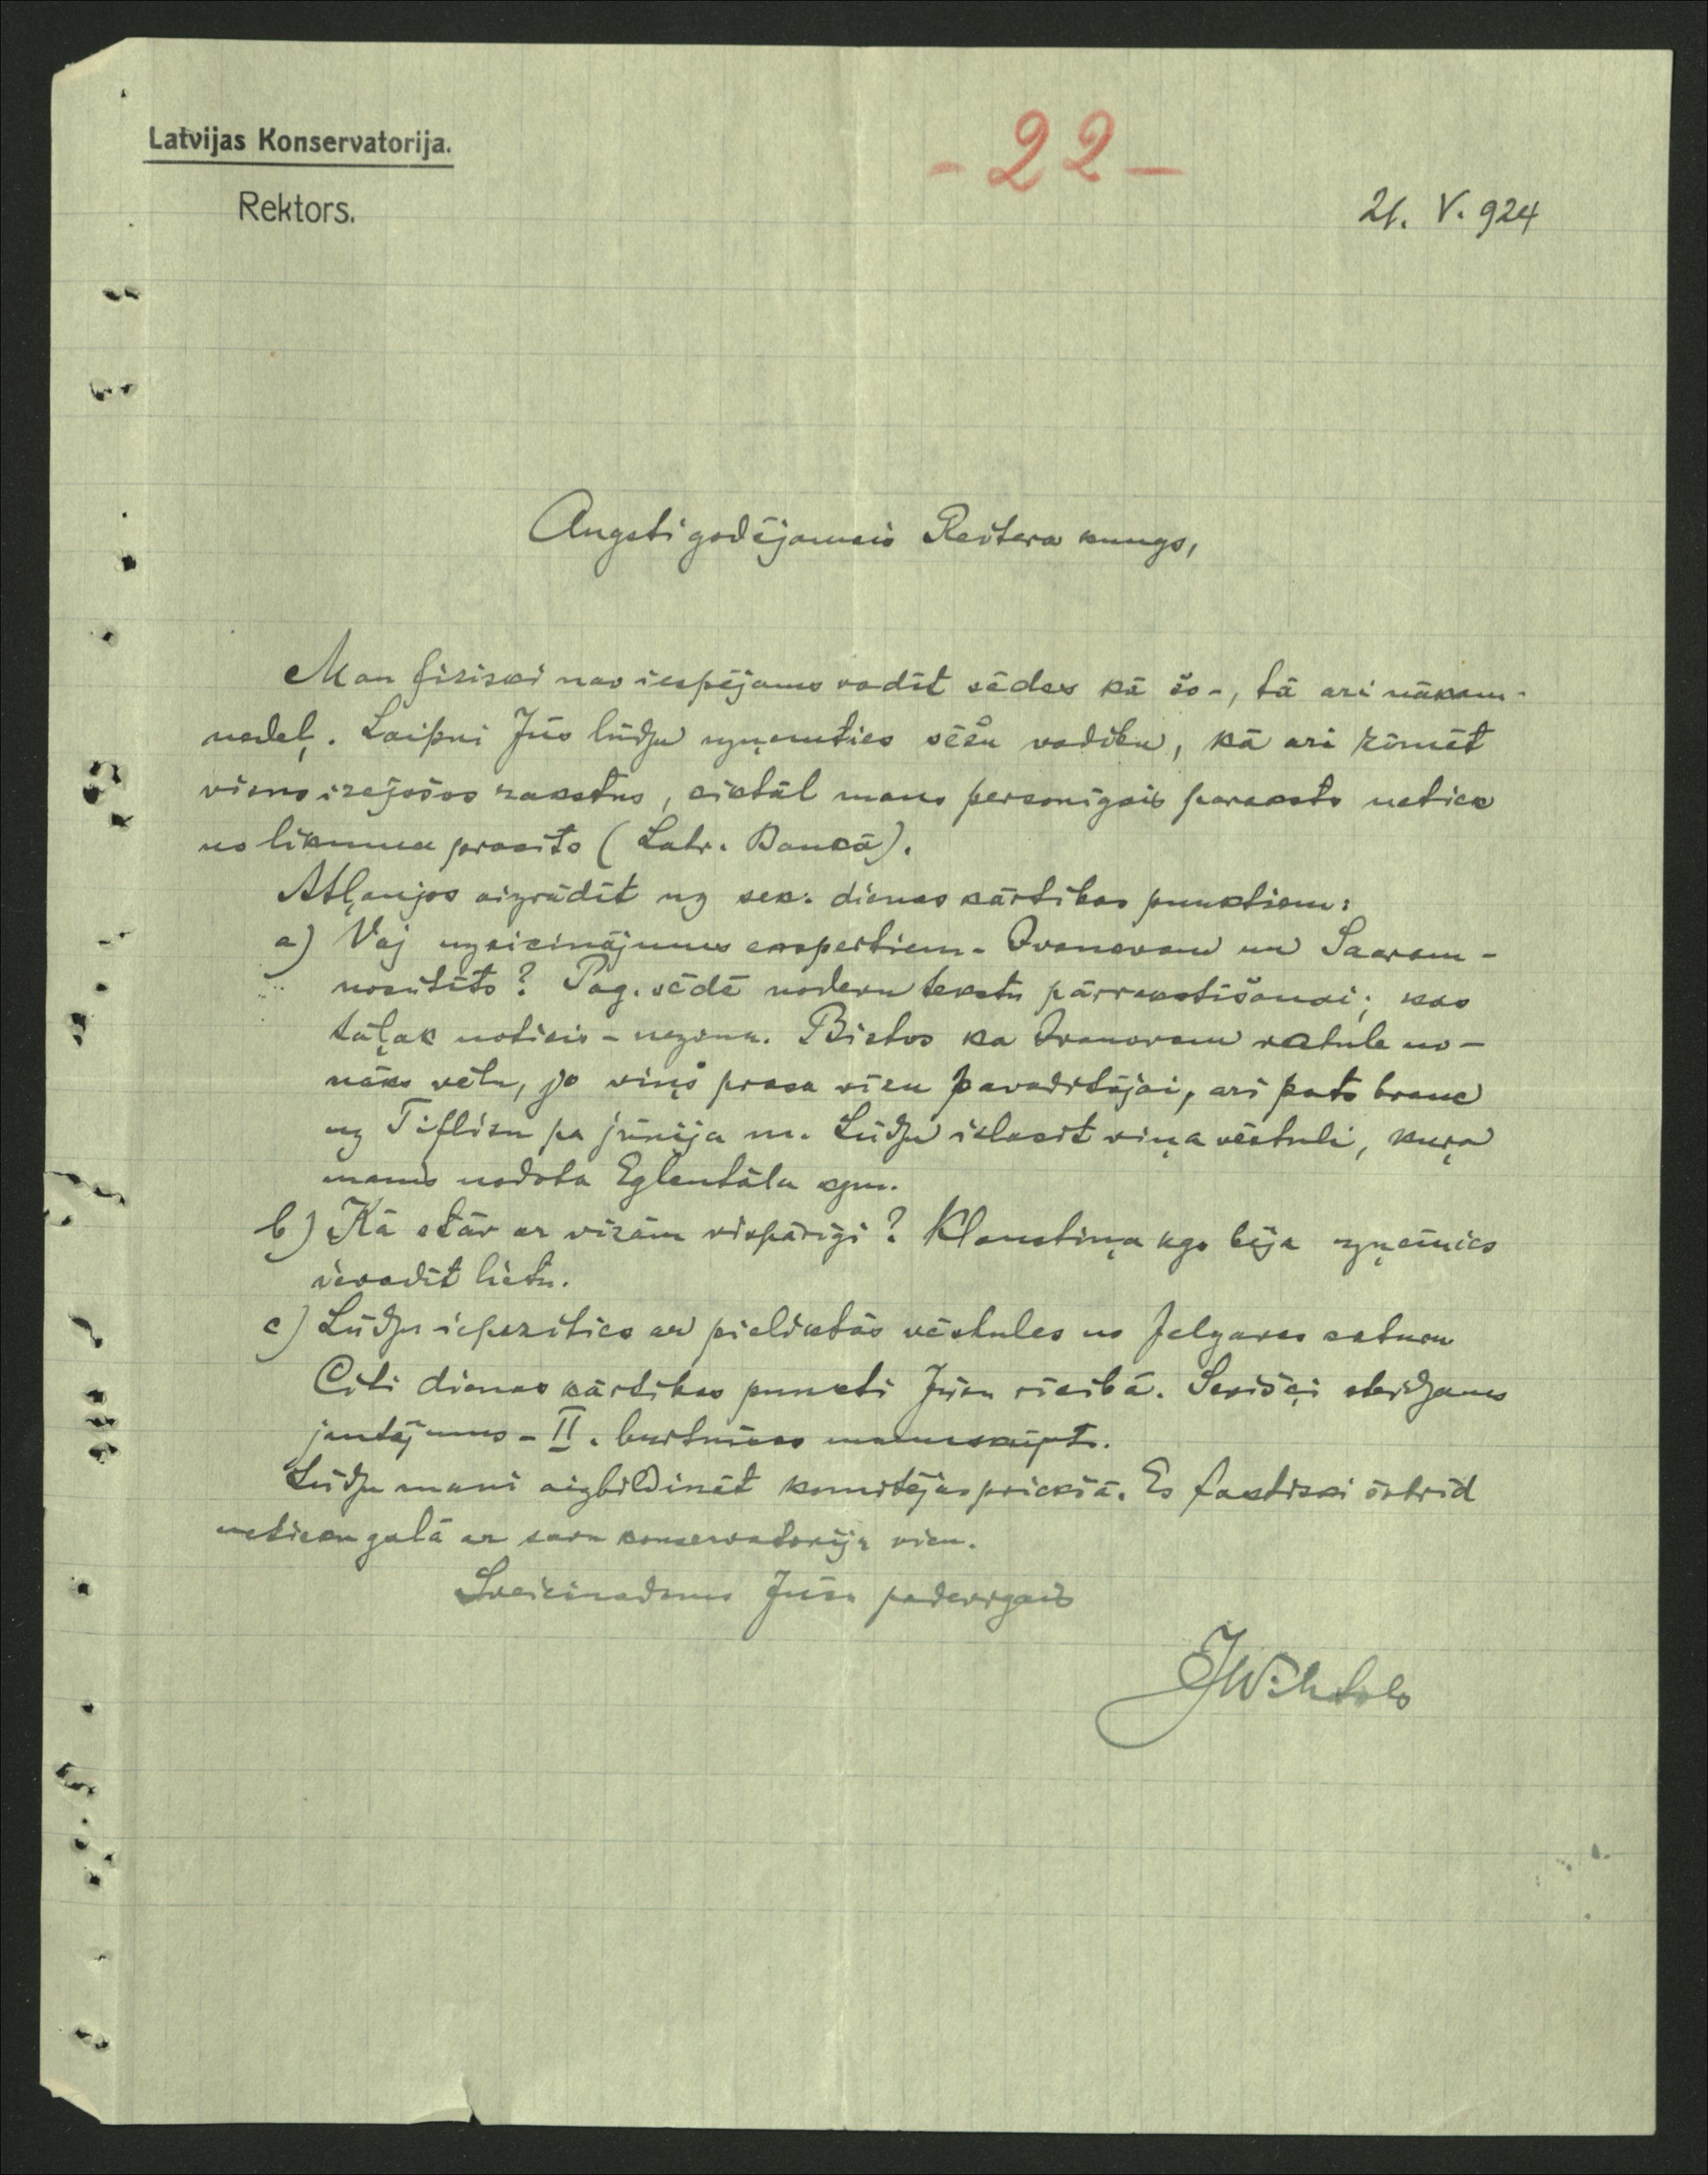 Latvijas Konservatorija.
Rektors.
- 22 -
21. V. 924
Augsti godājamais Reitera kungs,
Man fiziski nav iespējams vadīt sēdes kā šo-, tā ari nākam-
nedeļ. Laipni Jūs lūdzu uzņemties sēžu vadību, kā ari zīmēt
visus izejošos rakstus, ciktāl mans personīgais paraksts netiek
no likuma prasīts (Latv. Bankā).
Atļaujos aizrādīt uz sek. dienas kārtības punktiem:
a) Vaj uzaicinājums ekspertiem - Ivanovam un Saaram -
nosūtīts? Pag. sēdē nodevu tekstu pārrakstīšanai; kas
tāļak noticis - nezinu. Bīstos ka Ivanovam vēstule no-
nāks vēlu, jo viņš prasa vīzu pavadītājai, ari pats brauc
uz Tiflisu pa jūnija m. Lūdzu izlasīt viņa vēstuli, kuŗa
manis nodota Eglentāla kgm.
b) Kā stāv ar vīzām vispārīgi? Klaustiņa kgs bija uzņēmies
ievadīt lietu.
c) Lūdzu iepazīties ar pieliktās vēstules no Jelgavas saturu
Citi dienas kārtības punkti Jūsu rīcībā. Sevišķi steidzams
jautājums - II. burtnīcas manuskripts.
Lūdzu mani aizbildināt komitejas priekšā. Es faktiski šobrīd
netieku galā ar savu konservatoriju vien.
Sveicinadams Jūsu padevīgais
JWihtols